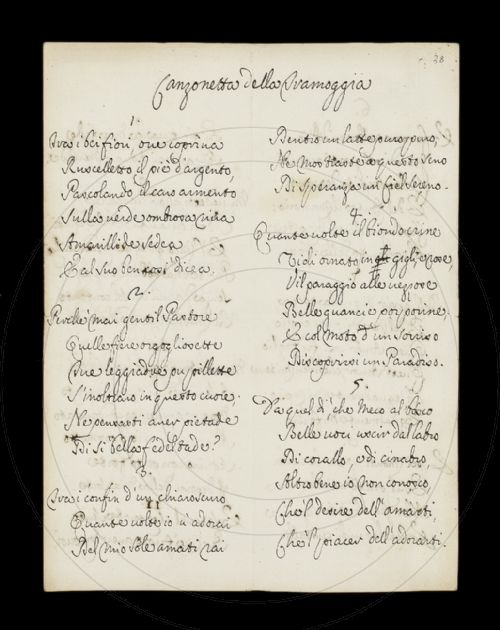 38
Canzonetta della Tramoggia
1.
Tra i bei fiori, ove copriva
Ruscelletto il piè d'argento,
Pascolando il caro armento
Sulla verde ombrosa riva
Amarillide sedea
E al suo ben così dicea.
2.
Perché mai gentil Pastore
Quelle fiere orgogliosette
Due leggiadre pupillette
S'inoltraro in questo cuore.
Ne pensasti aver pietade
Di sì bella fedeltade?
3.
Tra i confin d'un chiaroscuro
Quante volte io v'adorai
Del mio Sole amati rai
Dentro un latte puro puro,
Ne mostraste a questo seno
Di speranza un ciel sereno.
4.
Quante volte il biondo crine
Vidi ornato in gigli, e rose,
Vil paraggio alle vezzose
Belle guancie porporine.
E col moto d'un sorriso
Discoprirsi un Paradiso.
5.
Da quel dì che meco al bosco
Belle voci uscir dal labro
Di corallo, e di cinabro,
Altro bene io non conosco,
Che'l desire dell'amarti,
Che'l piacer dell'adorarti.